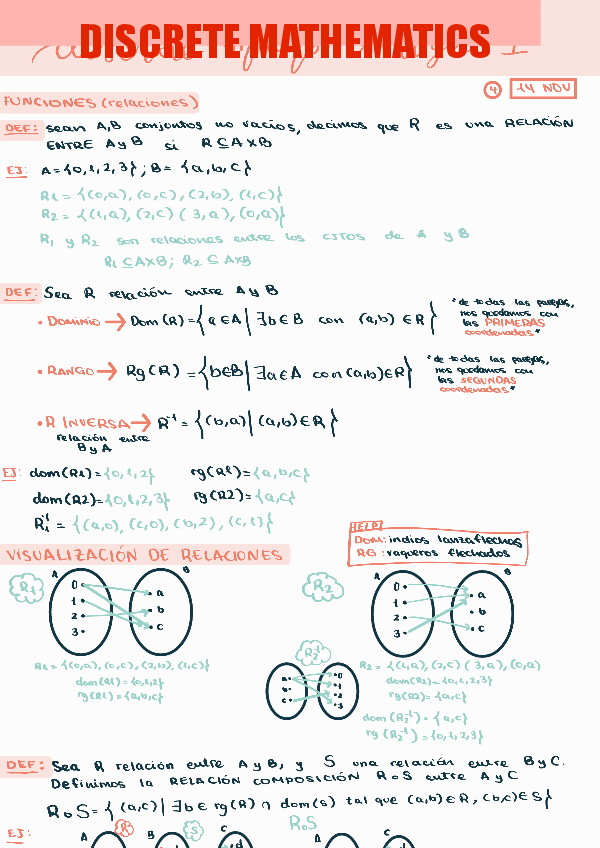 DISCRETE MATHEMATICS
4 14 NOV
FUNCIONES (relaciones)
DEF: sean A,B conjuntos no vacíos, decimos que R es una RELACIÓN
ENTRE A y B si R⊆AxB
EJ: A={0,1,2,3}; B={a,b,c}
R1={(0,a),(0,c),(2,b),(1,c)}
R2={(1,a),(2,c)(3,a),(0,a)}
R1 y R2 son relaciones entre los CJTOS de A y B
R1⊆AxB; R2⊆AxB
DEF: Sea R relación entre A y B
• DOMINIO → Dom(R)={a∈A|∃b∈B con (a,b)∈R}
"de todas las parejas,
nos quedamos con
las PRIMERAS
coordenadas"
• RANGO → Rg(R)={b∈B|∃a∈A con(a,b)∈R}
"de todas las parejas,
nos quedamos con
las SEGUNDAS
coordenadas"
• R INVERSA → R⁻¹={(b,a)|(a,b)∈R}
relación entre
B y A
EJ: dom(R1)={0,1,2} rg(R1)={a,b,c}
dom(R2)={0,1,2,3} rg(R2)={a,c}
R1⁻¹={(a,0),(c,0),(b,2),(c,1)}
HELP!
DOM: indios lanzaflechas
RG: vaqueros flechados
VISUALIZACIÓN DE RELACIONES
R1 A B
0 1 2 3
a b c
R2 A B
0 1 2 3
a b c
R1={(0,a),(0,c),(2,b),(1,c)}
dom(R1)={0,1,2}
rg(R1)={a,b,c}
R2⁻¹
a b c
0 1 2 3
R2={(1,a),(2,c)(3,a),(0,a)
dom(R2)={0,1,2,3}
rg(R2)={a,c}
dom(R2⁻¹)={a,c}
rg(R2⁻¹)={0,1,2,3}
DEF: Sea R relación entre A y B, y S una relación entre B y C.
Definimos la RELACIÓN COMPOSICIÓN R∘S entre A y C
R∘S={(a,c)|∃b∈rg(R)∩dom(s) tal que (a,b)∈R,(b,c)∈S}
EJ: A R B S C R∘S A C